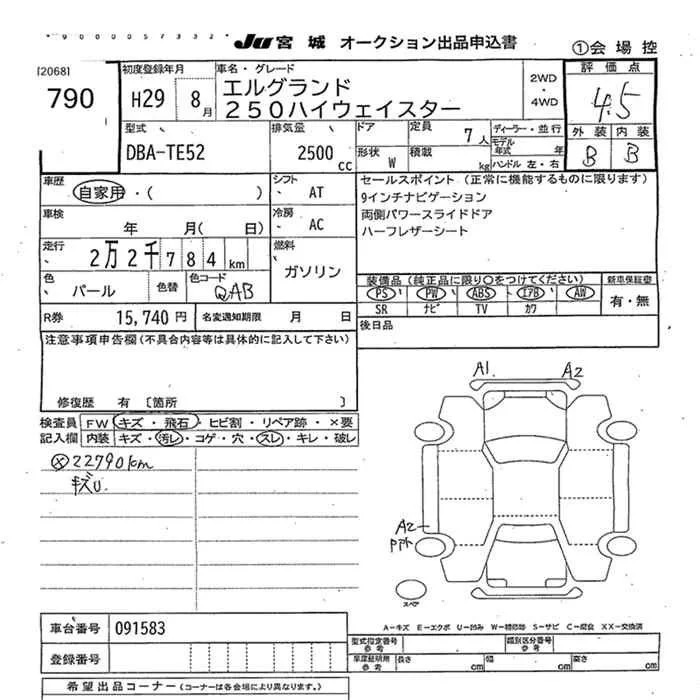 * 9 0 0 0 0 5 7 3 3 2 *
JU 宮城 オークション出品申込書
①会場控
[2068]
790
初度登録年月
H29 8月
車名・グレード
エルグランド
250ハイウェイスター
2WD
・
4WD
評価点
4.5
外装 内装
B B
型式
DBA-TE52
排気量
2500 cc
ドア
形状 W
定員 7人
積載 kg
ディーラー・並行
モデル年式 年
ハンドル 左・右
車歴
自家用・( )
シフト
AT
セールスポイント (正常に機能するものに限ります)
9インチナビゲーション
両側パワースライドドア
ハーフレザーシート
車検
年 月( 日)
冷房
AC
走行
2万2千784km
燃料
ガソリン
色
パール
色替
色コード
QAB
装備品(純正品に限り〇をつけてください)
新車保証書
PS PW ABS エアB AW
有・無
SR ナビ TV カワ
R券 15,740円
名変通知期限 月 日
後日品
注意事項申告欄(不具合内容等は具体的に記入して下さい)
修復歴 有 〔箇所 〕
検査員
記入欄
FW キズ・飛石・ヒビ割・リペア跡・×要
内装 キズ・汚レ・コゲ・穴・スレ・キレ・破レ
ⓧ22790km
キズU.
A1 A2
A2
スペア
A-キズ E-エクボ U-凹み W-補修跡 S-サビ C-腐食 XX-交換済
車台番号 091583
登録番号
型式指定番号
参考
類別区分番号
参考
車庫証明用
参考
長さ cm 幅 cm 高さ cm
希望出品コーナー(コーナーは各会場により異なります。)